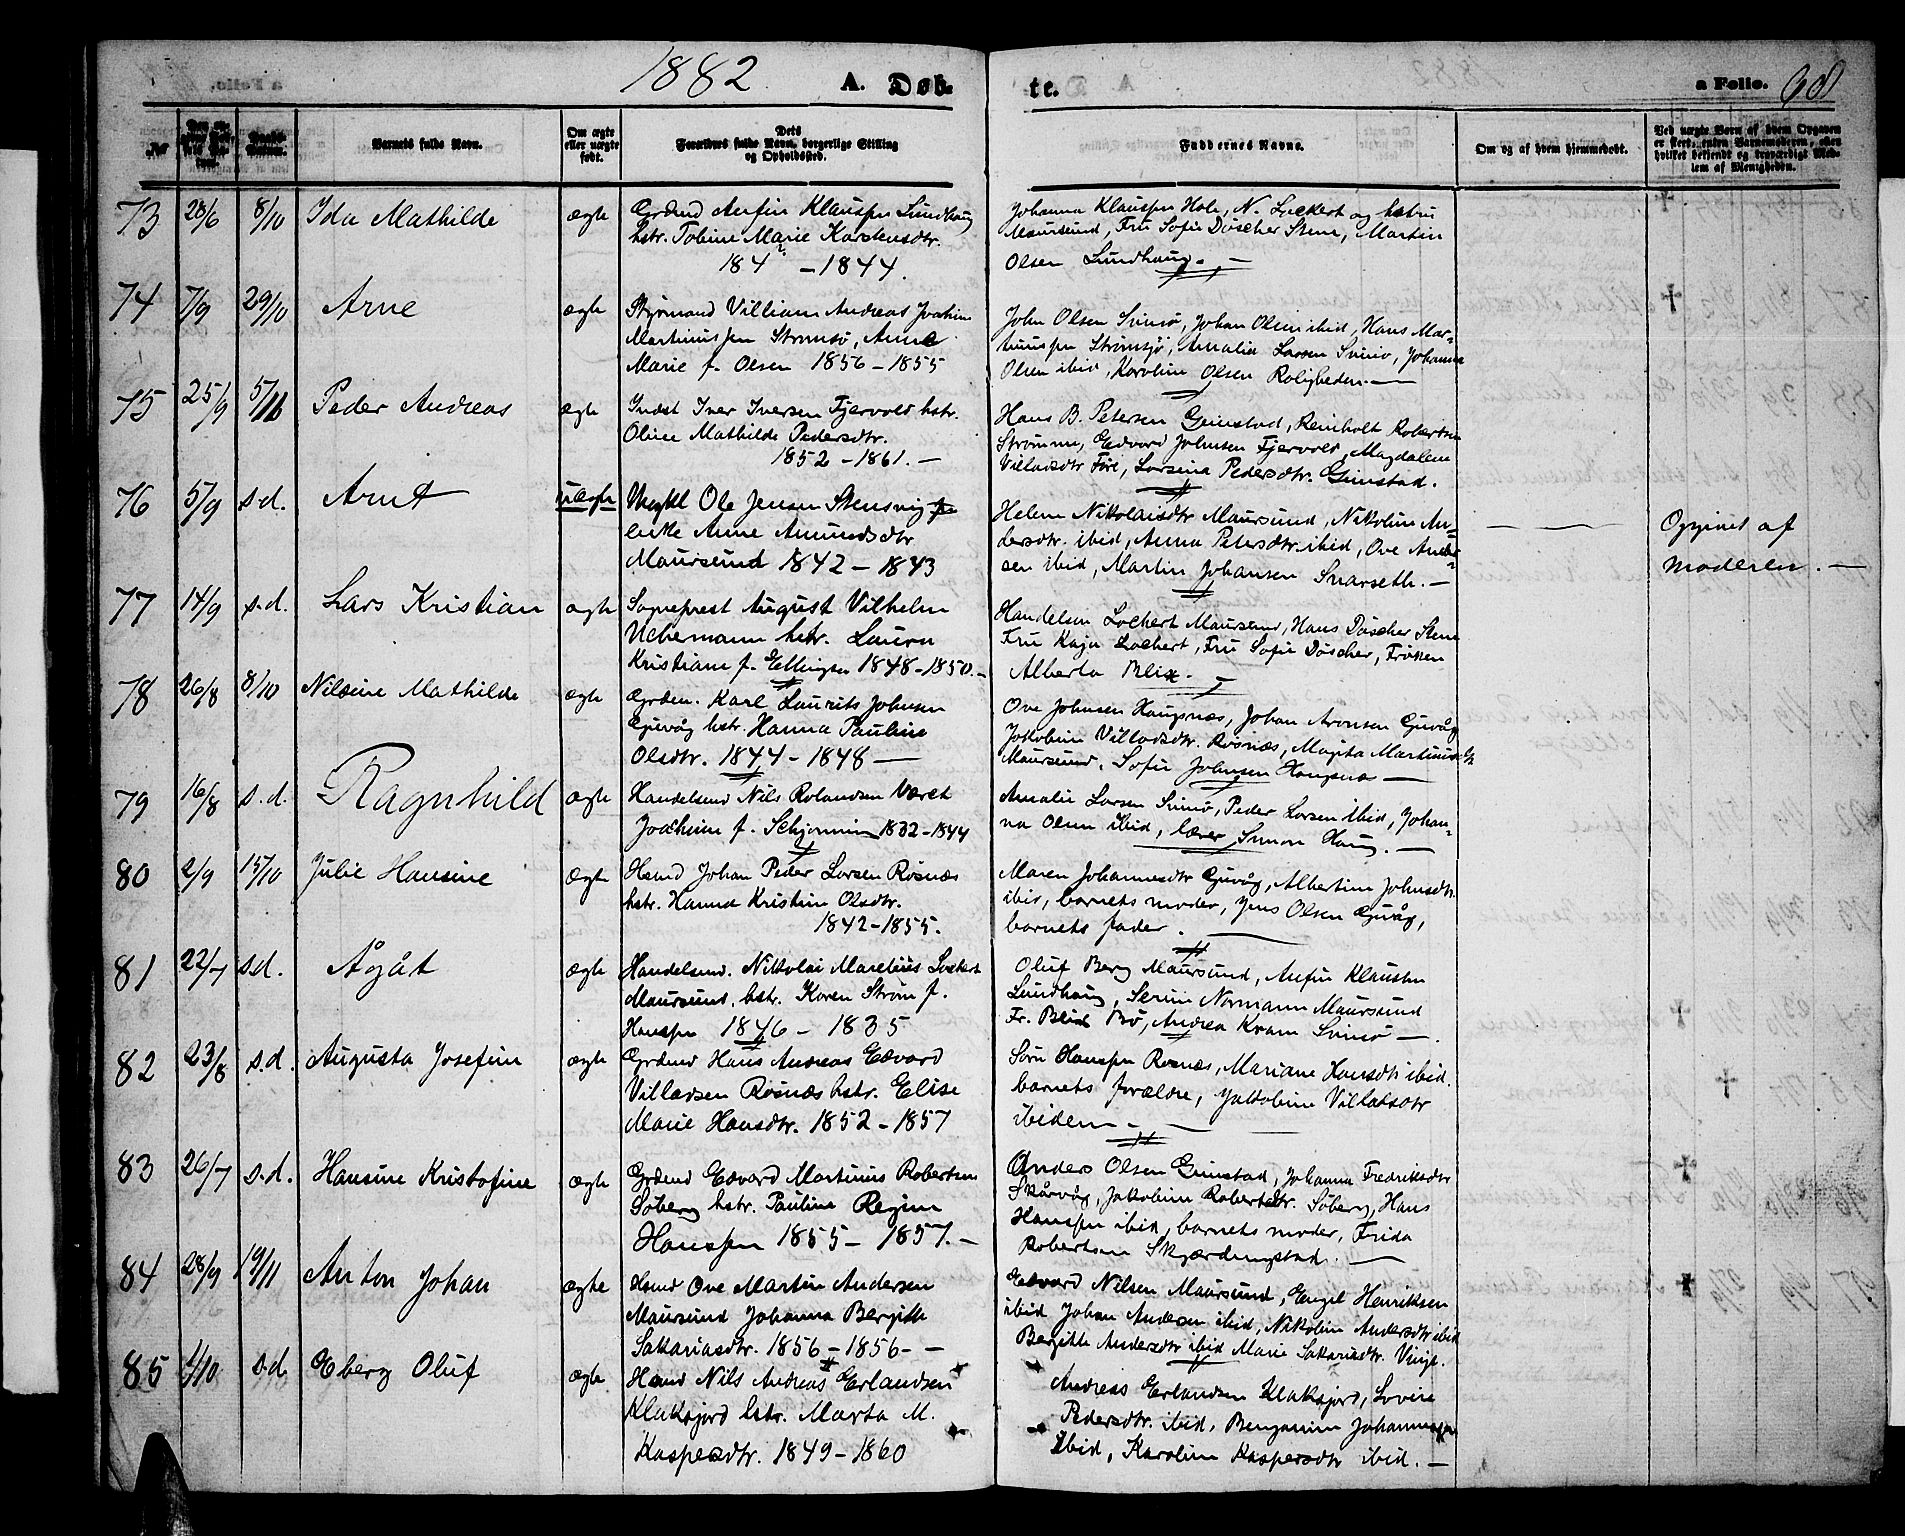 1882 A. Døb- te. a Folio. 68
No
Barnets fulde Navn.
Om ægte
eller uægte
født.
Dets
Forældres fulde Navn, borgerlige Stilling
og Opholdssted.
Faddernes Navne.
Om og af hvem hjemmedøbt.
Ved uægte Børn af hvem Opgaven
er skeet, enten Barnemoderen, eller
hvilket bekjendt og troværdigt Med-
lem af Menigheden.
73 28/6 8/10 Ida Mathilde ægte
Grdmd Anfin Klaussen Lundhaug
hstr. Tobine Marie Karstensdtr.
184 – 1844.
Johanna Klaussen Hole, N. Lockert og hstru
Maursund, Fru Sofie Døscher Stene, Martin
Olsen Lundhaug. —
74 7/9 29/10 Arne ægte
Styrmand Villiam Andreas Joachim
Martinussen Strømsø, Anne
Marie f. Olsen 1856 – 1855
John Olsen Svinø, Johan Olsen ibid, Hans Mar-
tinussen Strømsjø, Amalia Larsen Svinø, Johanna
Olsen ibid, Karoline Olsen Roligheden. —
75 25/9 5/11 Peder Andreas ægte
Indst Iver Iversen Fjærvold hstr.
Oline Mathilde Pedersdtr.
1852 – 1861. —
Hans B. Petersen Grimstad, Reinholt Robertsen
Strømme, Edvard Johnsen Fjærvold, Magdalene
Villadsdtr Føre, Larsina Pedersdtr. Grimstad.
76 5/9 s.d. Arnt uægte
Ungkl Ole Jensen Stensvig
enke Anne Amundsdtr
Maursund 1842 – 1843
Helene Nikolaisdtr Maursund, Nikoline An-
dersdtr. ibid, Anna Petersdtr. ibid, Ove Ander-
sen ibid, Martin Johansen Svarseth. —
— —
Opgivet af
moderen. —
77 14/9 s.d. Lars Kristian ægte
Sogneprest August Vilhelm
Uchermann hstr. Laura
Kristiane f. Ellingsen 1848 – 1850. –
Handelsm Lockert Maursund, Hans Døscher Stene
Fru Kaja Lockert, Fru Sofie Døscher, Frøken
Alberta Blix. —
78 26/8 8/10 Nilsine Mathilde ægte
Grdem. Karl Laurits Johnsen
Guvåg hstr. Hanna Pauline
Olsdtr. 1844 – 1848 —
Ove Johnsen Haugsnæs, Johan Aronsen Guvåg
Jakobine Villadsdtr. Røsnæs, Magita Martinusdtr
Maursund, Sofie Johnsen Haugsnæs —
79 16/8 s.d. Ragnhild ægte
Handelsmd Nils RolandsenVæret
Jochim f. 1832 – 1844
Amalie Larsen Svinø, Peder Larsen ibid, Johan-
na Olsen ibid, lærer Simon Haug. —
80 2/9 15/10 Julie Hansine ægte
Hsmd Johan Peder Larsen Røsnæs
hstr. Hanna Kristine Olsdtr.
1842 – 1855.
Maren Johannesdtr Guvåg, Albertine Johnsdtr
ibid, barnets moder, Jens Olsen Guvåg,
barnets fader.
81 22/7 s.d. Ågåt ægte
Handelsmd. Nikolai Marelius Lockert
Maursund, hstr. Karen Strøm f.
Hanssen 1846 – 1835
Oluf Berg Maursund, Anfin Klaussen
Lundhaug, Serine Normann Maursund
Fr. Blix Bø, Andrea Kram Svinø —
82 23/8 s.d. Augusta Josefine ægte
Grdmd Hans Andreas Edvard
Villadsen Røsnæs hstr. Elise
Marie Hansdtr. 1852 – 1857
Sørn Hanssen Røsnæs, Mariane Hansdtr ibid.
barnets forældre, Jakobine Villadsdtr
ibidem —
83 26/7 s.d. Hansine Kristofine ægte
Grdmd Edvard Martinus Robertsen
Søberg hstr. Pauline Regine
Hanssen 1855 – 1857. —
Anders Olsen Grimstad, Johanna Fredriksdtr
Skårvåg, Jakobine Robertsdtr. Søberg, Hans
Hanssen ibid, barnets moder, Frida
Robertsen Skjærdingstad. —
84 28/9 19/11 Anton Johan ægte
Hsmd Ove Martin Andersen
Maursund Johanna Bergitte
Sakariasdtr. 1856 – 1856 – —
Edvard Nilsen Maursund, Engel Henriksen
ibid Johan Andersen ibid, Nikoline Andersdtr ibid
Bergitte Andersdtr ibid Marie Sakariasdtr. Vinje.
85 1/10 s.d Eberg Oluf ægte
Hsmd Nils Andreas Erlandsen
Klaksjord hstr. Marta M.
Kaspersdtr. 1849 – 1860
Andreas Erlandsen Klaksjord, Lovise
Pedersdtr. ibid, Benjamin Johannessen
ibid, Karoline Kaspersdtr ibid. —